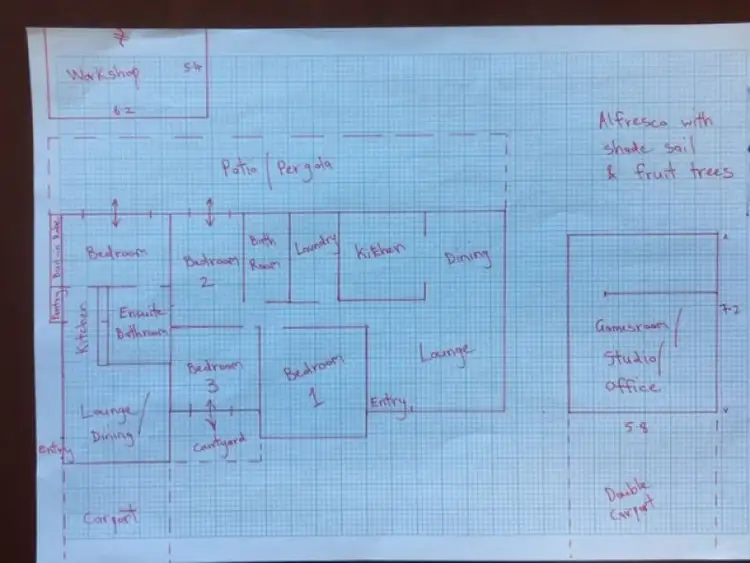 Workshop
5.4
6.2
Alfresco with
shade sail
& fruit trees
Patio/Pergola
Built in Robe
Bedroom
Bedroom
2
Bath
Room
Laundry
Kitchen
Dining
Pantry
Kitchen
Ensuite
Bathroom
Gamesroom/
Studio/
Office
7.2
5.8
Bedroom
3
Bedroom
1
Lounge
Entry
Lounge/
Dining
Entry
Courtyard
Carport
Double
Carport